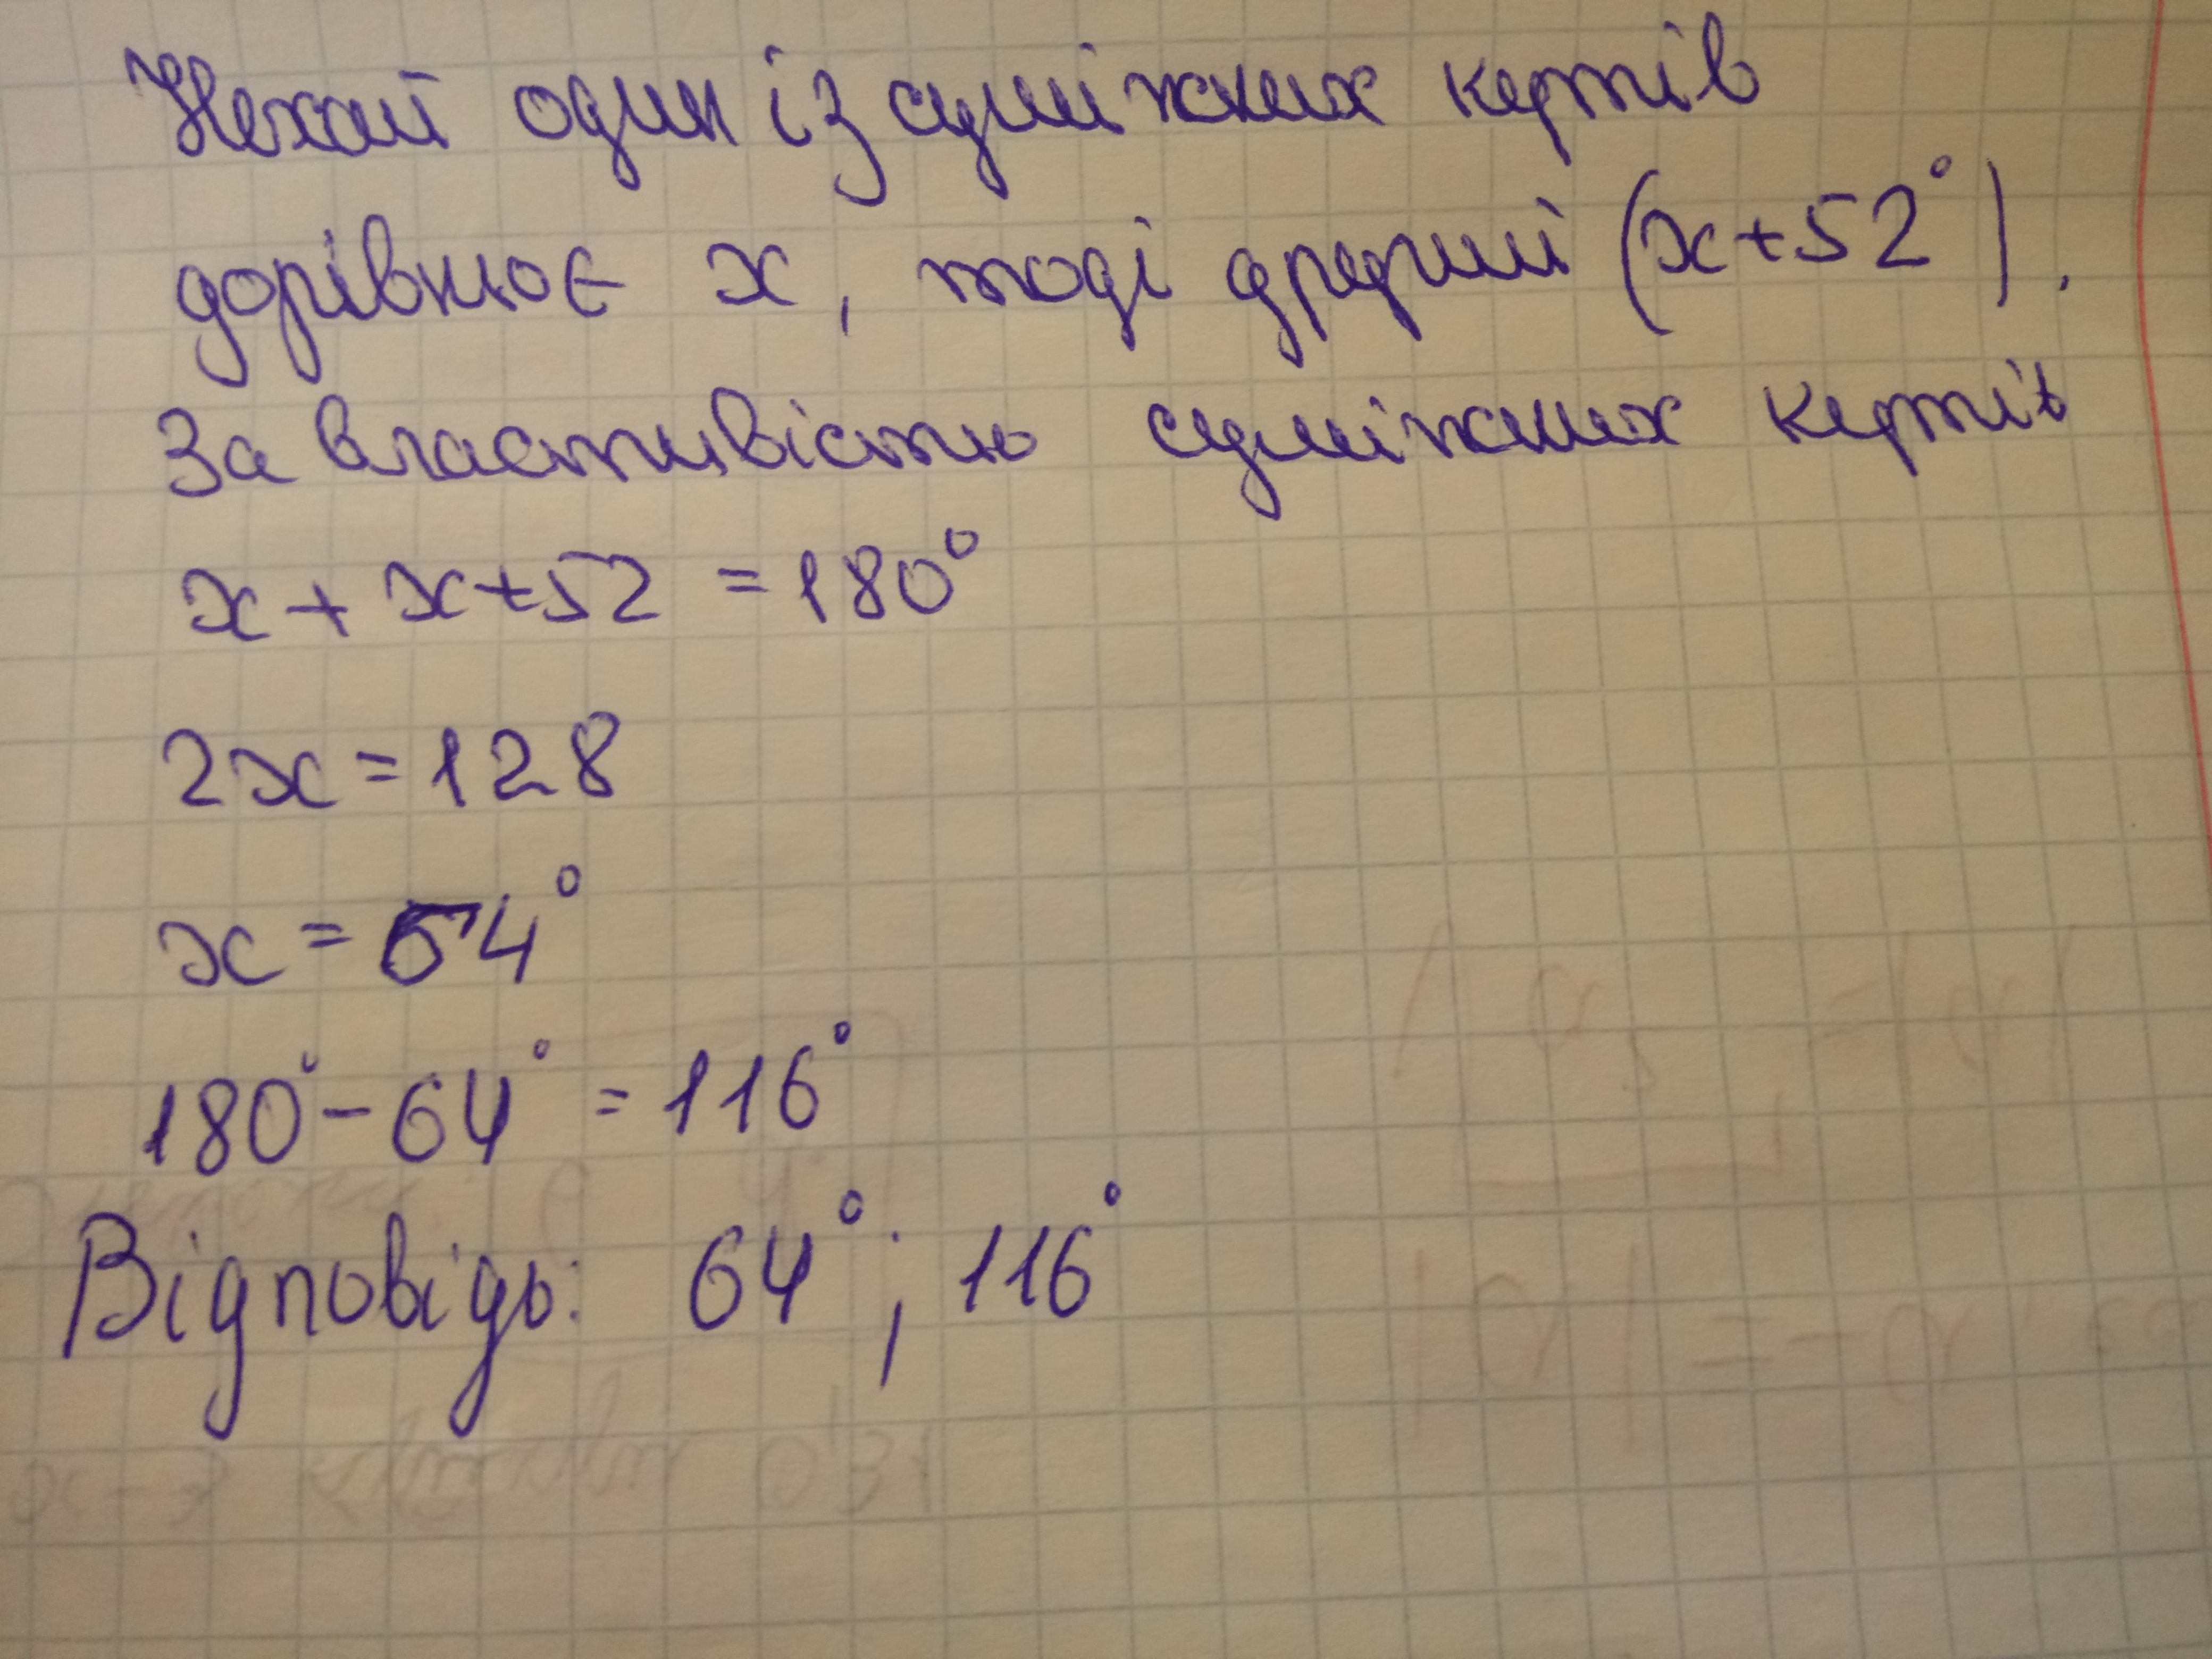 Нехай один із суміжних кутів
дорівнює x, тоді другий (x+52°).
За властивістю суміжних кутів
x + x+52 = 180°
2x = 128
x = 64°
180° - 64° = 116°
Відповідь: 64°; 116°